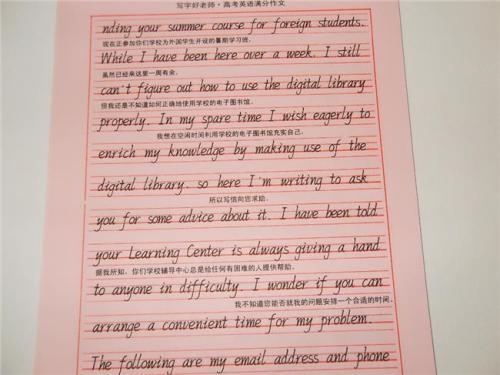 写字好老师·高考英语满分作文
nding your summer course for foreign students.
现在正参加你们学校为外国学生开设的暑期学习班。
While I have been here over a week, I still
虽然已经来这里一周有余,
can't figure out how to use the digital library
但我还是不知道如何正确地使用学校的电子图书馆。
properly. In my spare time I wish eagerly to
我想在空闲时间利用学校的电子图书馆充实自己,
enrich my knowledge by making use of the
digital library. so here I'm writing to ask
所以写信向您求助。
you for some advice about it. I have been told
your Learning Center is always giving a hand
据我所知,你们学校辅导中心总是给任何有困难的人提供帮助。
to anyone in difficulty. I wonder if you can
我不知道您能否就我的问题安排一个合适的时间。
arrange a convenient time for my problem.
The following are my email address and phone